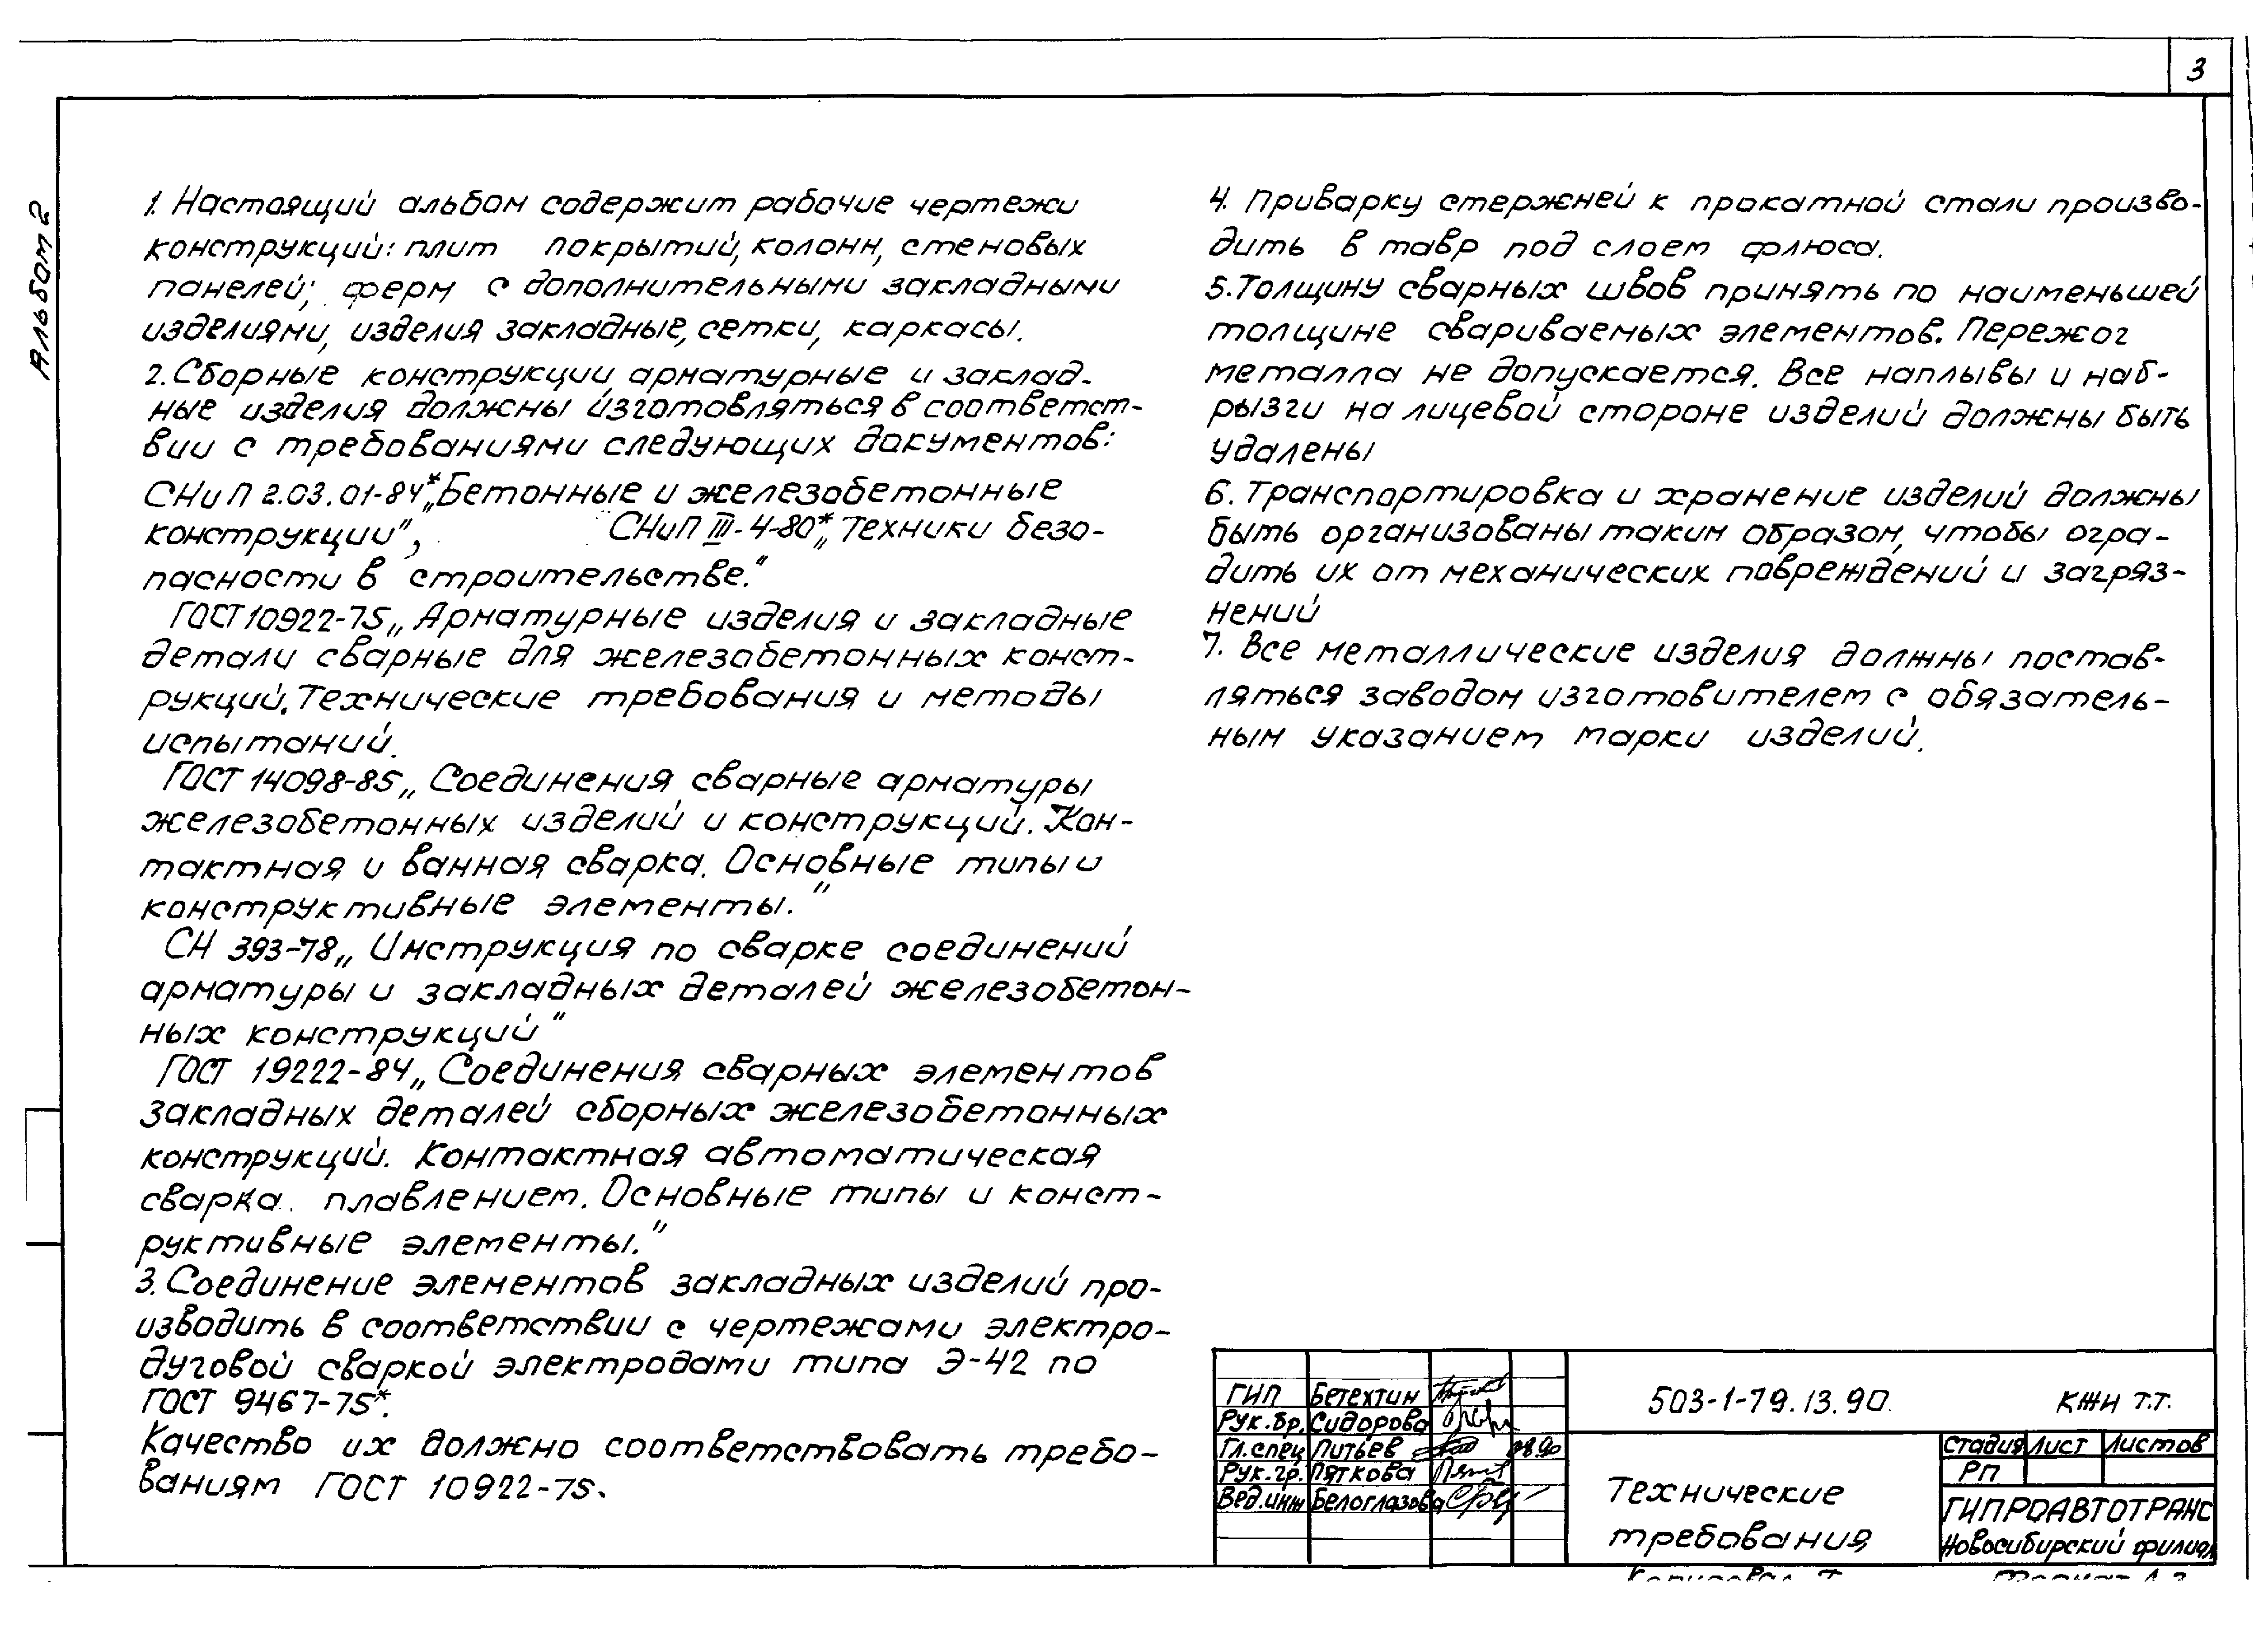 3
Альбом 2
1. Настоящий альбом содержит рабочие чертежи
конструкций: плит покрытий, колонн, стеновых
панелей; ферм с дополнительными закладными
изделиями, изделия закладные, сетки, каркасы.
2. Сборные конструкции, арматурные и заклад-
ные изделия должны изготовляться в соответст-
вии с требованиями следующих документов:
СНиП 2.03.01-84* „Бетонные и железобетонные
конструкции", СНиП III-4-80* „Техники безо-
пасности в строительстве."
ГОСТ 10922-75 „Арматурные изделия и закладные
детали сварные для железобетонных конст-
рукций. Технические требования и методы
испытаний.
ГОСТ 14098-85 „Соединения сварные арматуры
железобетонных изделий и конструкций. Кон-
тактная и ванная сварка. Основные типы и
конструктивные элементы."
СН 393-78 „Инструкция по сварке соединений
арматуры и закладных деталей железобетон-
ных конструкций"
ГОСТ 19222-84 „Соединения сварных элементов
закладных деталей сборных железобетонных
конструкций. Контактная автоматическая
сварка плавлением. Основные типы и конст-
руктивные элементы."
3. Соединение элементов закладных изделий про-
изводить в соответствии с чертежами электро-
дуговой сваркой электродами типа Э-42 по
ГОСТ 9467-75*.
Качество их должно соответствовать требо-
ваниям ГОСТ 10922-75.
4. Приварку стержней к прокатной стали произво-
дить в тавр под слоем флюса.
5. Толщину сварных швов принять по наименьшей
толщине свариваемых элементов. Пережог
металла не допускается. Все наплывы и наб-
рызги на лицевой стороне изделий должны быть
удалены
6. Транспортировка и хранение изделий должны
быть организованы таким образом, чтобы огра-
дить их от механических повреждений и загряз-
нений
7. Все металлические изделия должны постав-
ляться заводом изготовителем с обязатель-
ным указанием марки изделий.
ГИП Бетехтин
Рук.бр. Сидорова
Гл.спец Питьев 08.90
Рук.гр. Пяткова
Вед.инж Белоглазова
503-1-79.13.90. КЖИ Т.Т.
Технические
требования
Стадия Лист Листов
РП
ГИПРОАВТОТРАНС
Новосибирский филиал